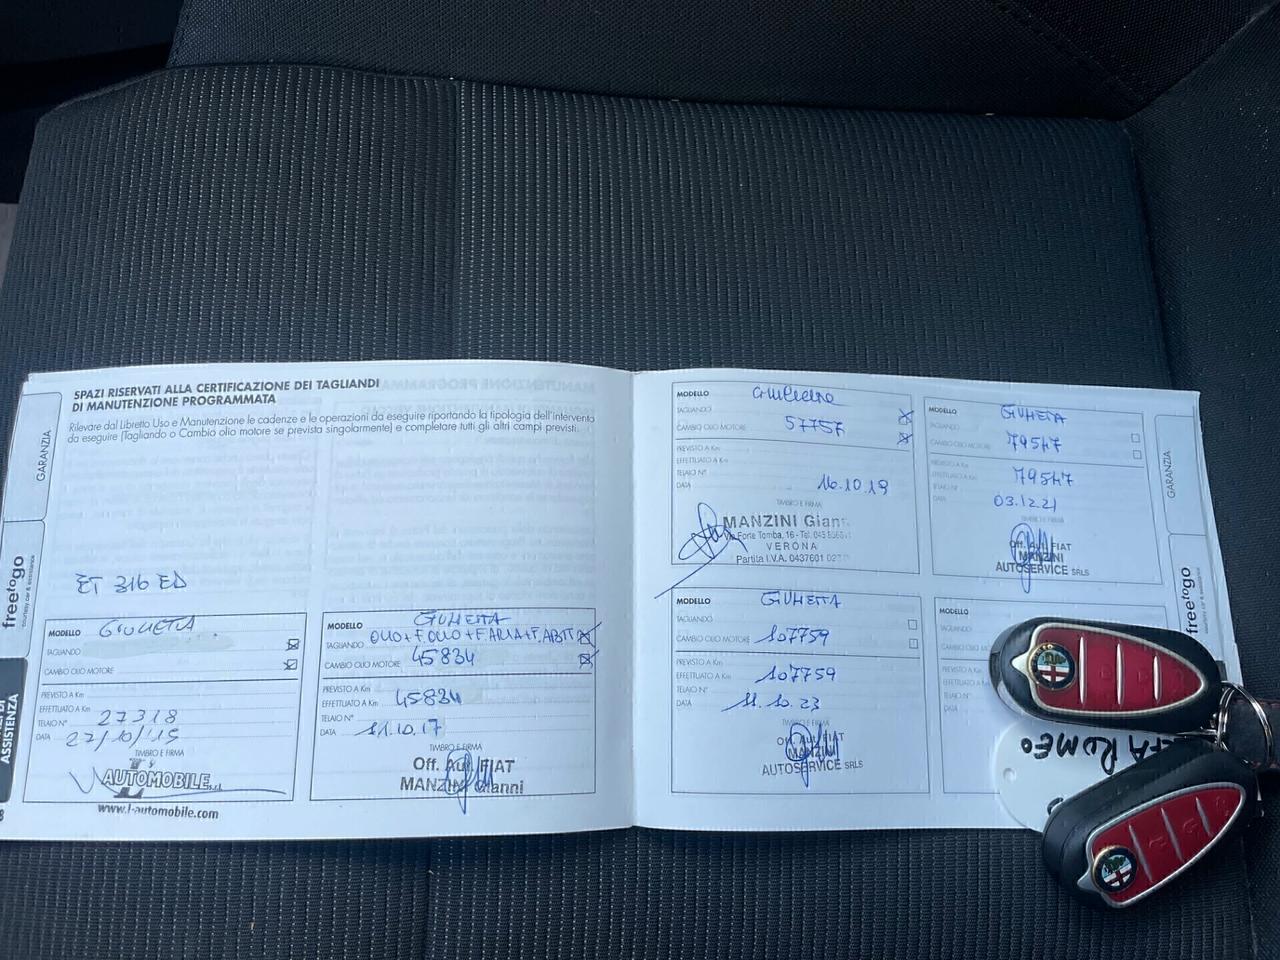 SPAZI RISERVATI ALLA CERTIFICAZIONE DEI TAGLIANDI
DI MANUTENZIONE PROGRAMMATA
Rilevare dal Libretto Uso e Manutenzione le cadenze e le operazioni da eseguire riportando la tipologia dell'intervento
da eseguire (Tagliando o Cambio olio motore se prevista singolarmente) e completare tutti gli altri campi previsti.
GARANZIA
freetogo
ASSISTENZA
ET 316 ED
MODELLO GIULIETTA
TAGLIANDO
CAMBIO OLIO MOTORE
PREVISTO A Km
EFFETTUATO A Km 27318
TELAIO N°
DATA
TIMBRO E FIRMA
AUTOMOBILE
www.l-automobile.com
MODELLO GIULIETTA
TAGLIANDO OLIO+F.OLIO+F.ARIA+F.ABIT
CAMBIO OLIO MOTORE 45834
PREVISTO A Km
EFFETTUATO A Km 45834
TELAIO N°
DATA 11.10.17
TIMBRO E FIRMA
Off. Aut. FIAT
MANZINI Gianni
MODELLO Giulietta
TAGLIANDO
CAMBIO OLIO MOTORE 57757
PREVISTO A Km
EFFETTUATO A Km
TELAIO N°
DATA 16.10.19
TIMBRO E FIRMA
MANZINI Giann
Via Forte Tomba, 16 - Tel. 045
VERONA
Partita I.V.A. 0437601
MODELLO GIULIETTA
TAGLIANDO
CAMBIO OLIO MOTORE 79547
PREVISTO A Km
EFFETTUATO A Km 79547
TELAIO N°
DATA 03.12.21
Off. Aut. FIAT
MANZINI
AUTOSERVICE SRLS
MODELLO GIULIETTA
TAGLIANDO
CAMBIO OLIO MOTORE 107759
PREVISTO A Km
EFFETTUATO A Km 107759
TELAIO N°
DATA 11.10.23
TIMBRO E FIRMA
Off. Aut. FIAT
MANZINI
AUTOSERVICE SRLS
MODELLO
TAGLIANDO
GARANZIA
freetogo
ROMEO